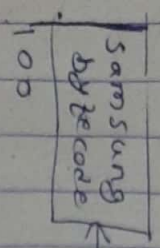 Samsung
bytecode
100